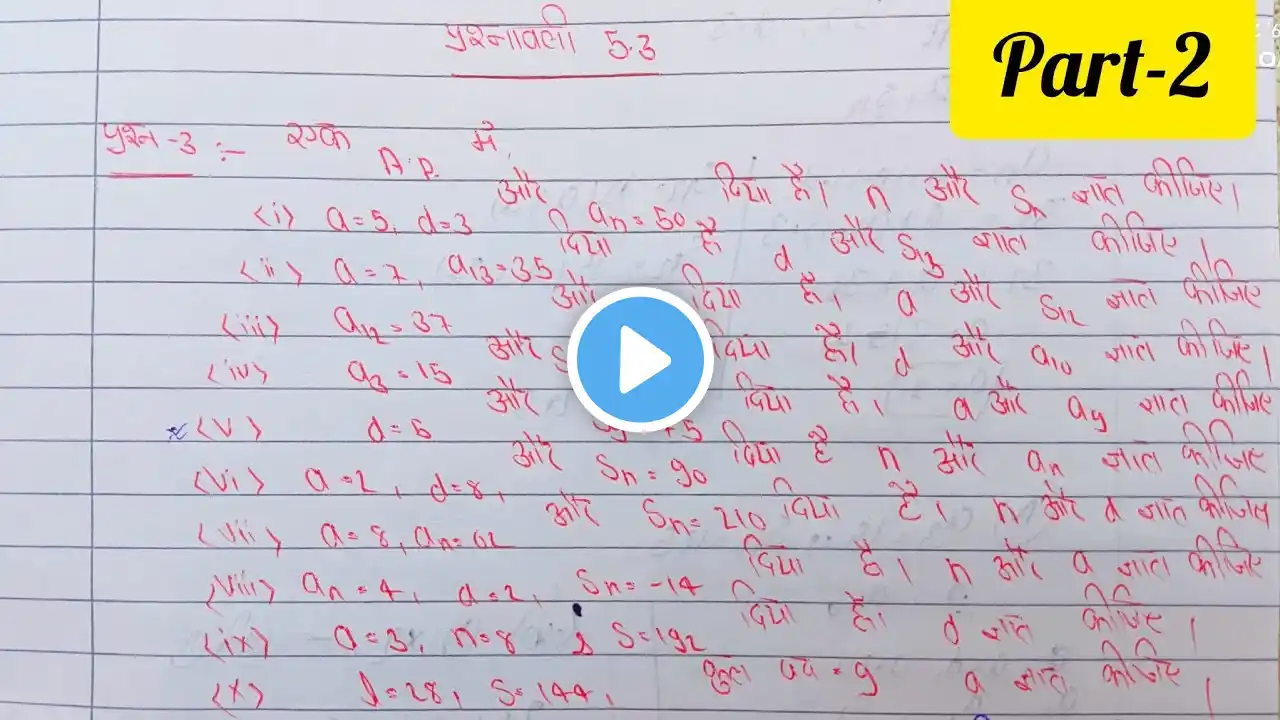 प्रश्नावली 5.3
Part-2
प्रश्न-3 :- एक A.P. में,
<i> a=5, d=3 और an=50 दिया है। n और Sn ज्ञात कीजिए।
<ii> a=7, a13=35 दिया है d और S13 ज्ञात कीजिए।
<iii> a12=37 और दिया है। a और S12 ज्ञात कीजिए
<iv> a3=15 और दिया है। d और a10 ज्ञात कीजिए।
<v> d=5 और दिया है। a और a9 ज्ञात कीजिए
<vi> a=2, d=8, और Sn=90 दिया है n और an ज्ञात कीजिए
<vii> a=8, an=62 और Sn=210 दिया है। n और d ज्ञात कीजिए
<viii> an=4, d=2, Sn=-14 दिया है। n और a ज्ञात कीजिए
<ix> a=3, n=8 S=192 दिया है। d ज्ञात कीजिए।
<x> l=28, S=144, कुल पद=9 a ज्ञात कीजिए।